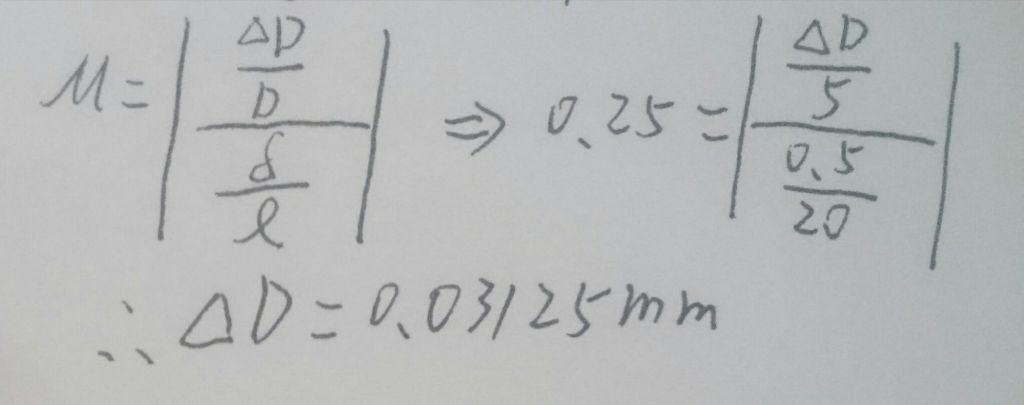 μ = | (ΔD/D) / (δ/ℓ) | ⇒ 0.25 = | (ΔD/5) / (0.5/20) |
∴ ΔD = 0.03125mm